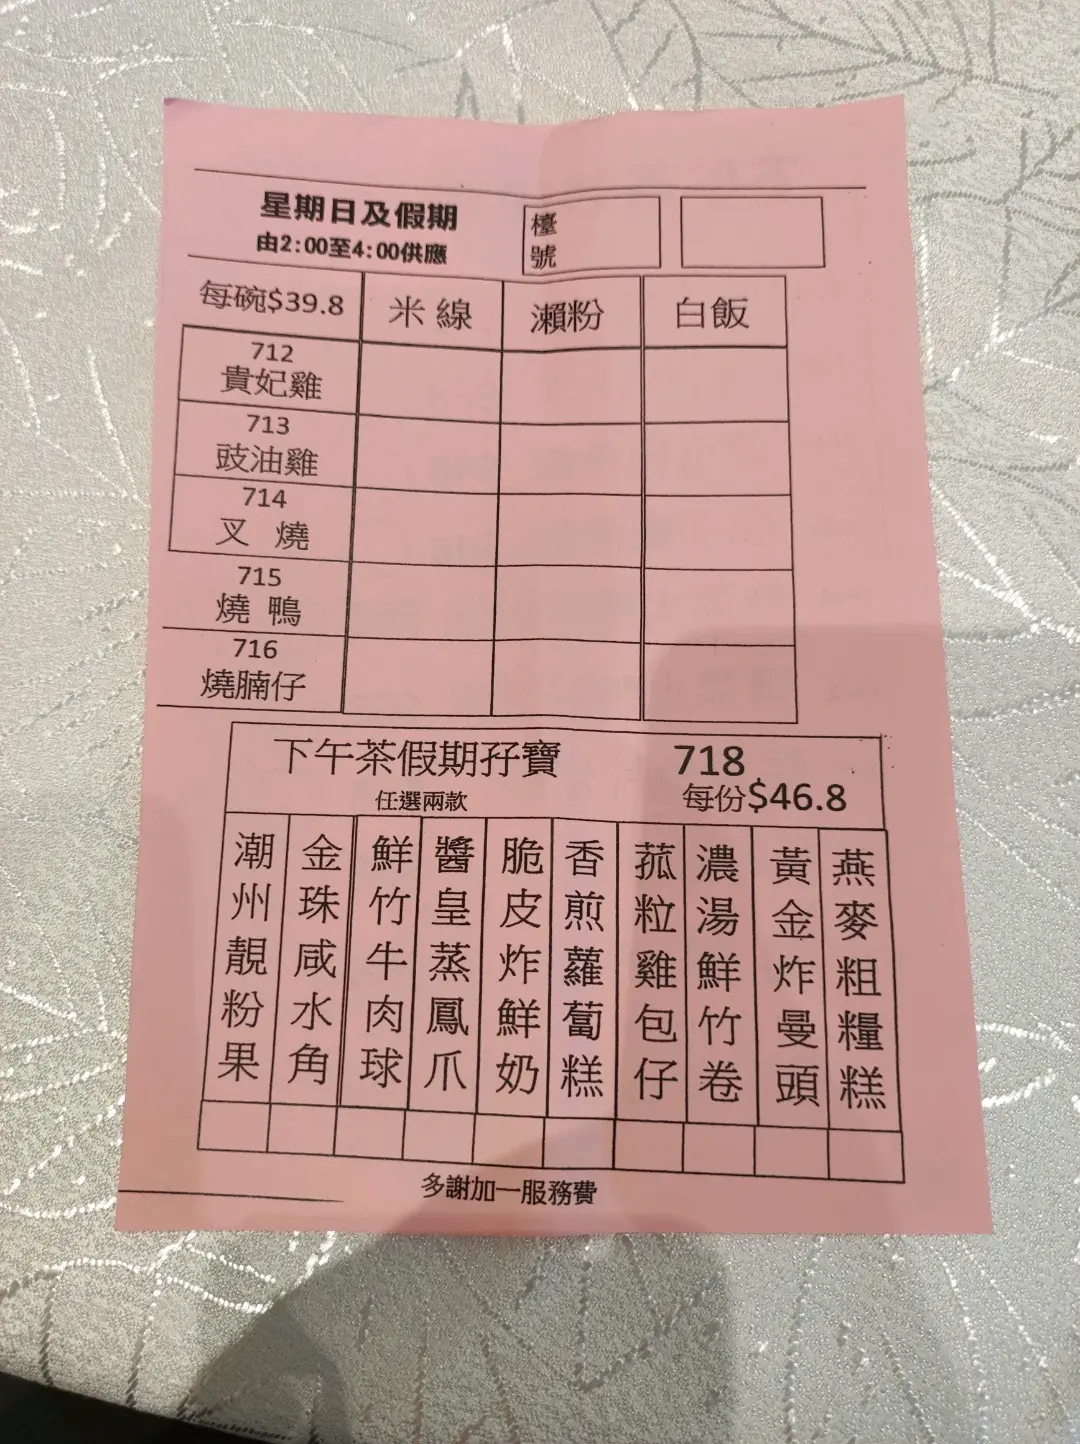 星期日及假期
由2:00至4:00供應
檯
號
每碗$39.8
米線
瀨粉
白飯
712
貴妃雞
713
豉油雞
714
叉燒
715
燒鴨
716
燒腩仔
下午茶假期孖寶
718
任選兩款
每份$46.8
潮州靚粉果
金珠咸水角
鮮竹牛肉球
醬皇蒸鳳爪
脆皮炸鮮奶
香煎蘿蔔糕
菰粒雞包仔
濃湯鮮竹卷
黃金炸曼頭
燕麥粗糧糕
多謝加一服務費